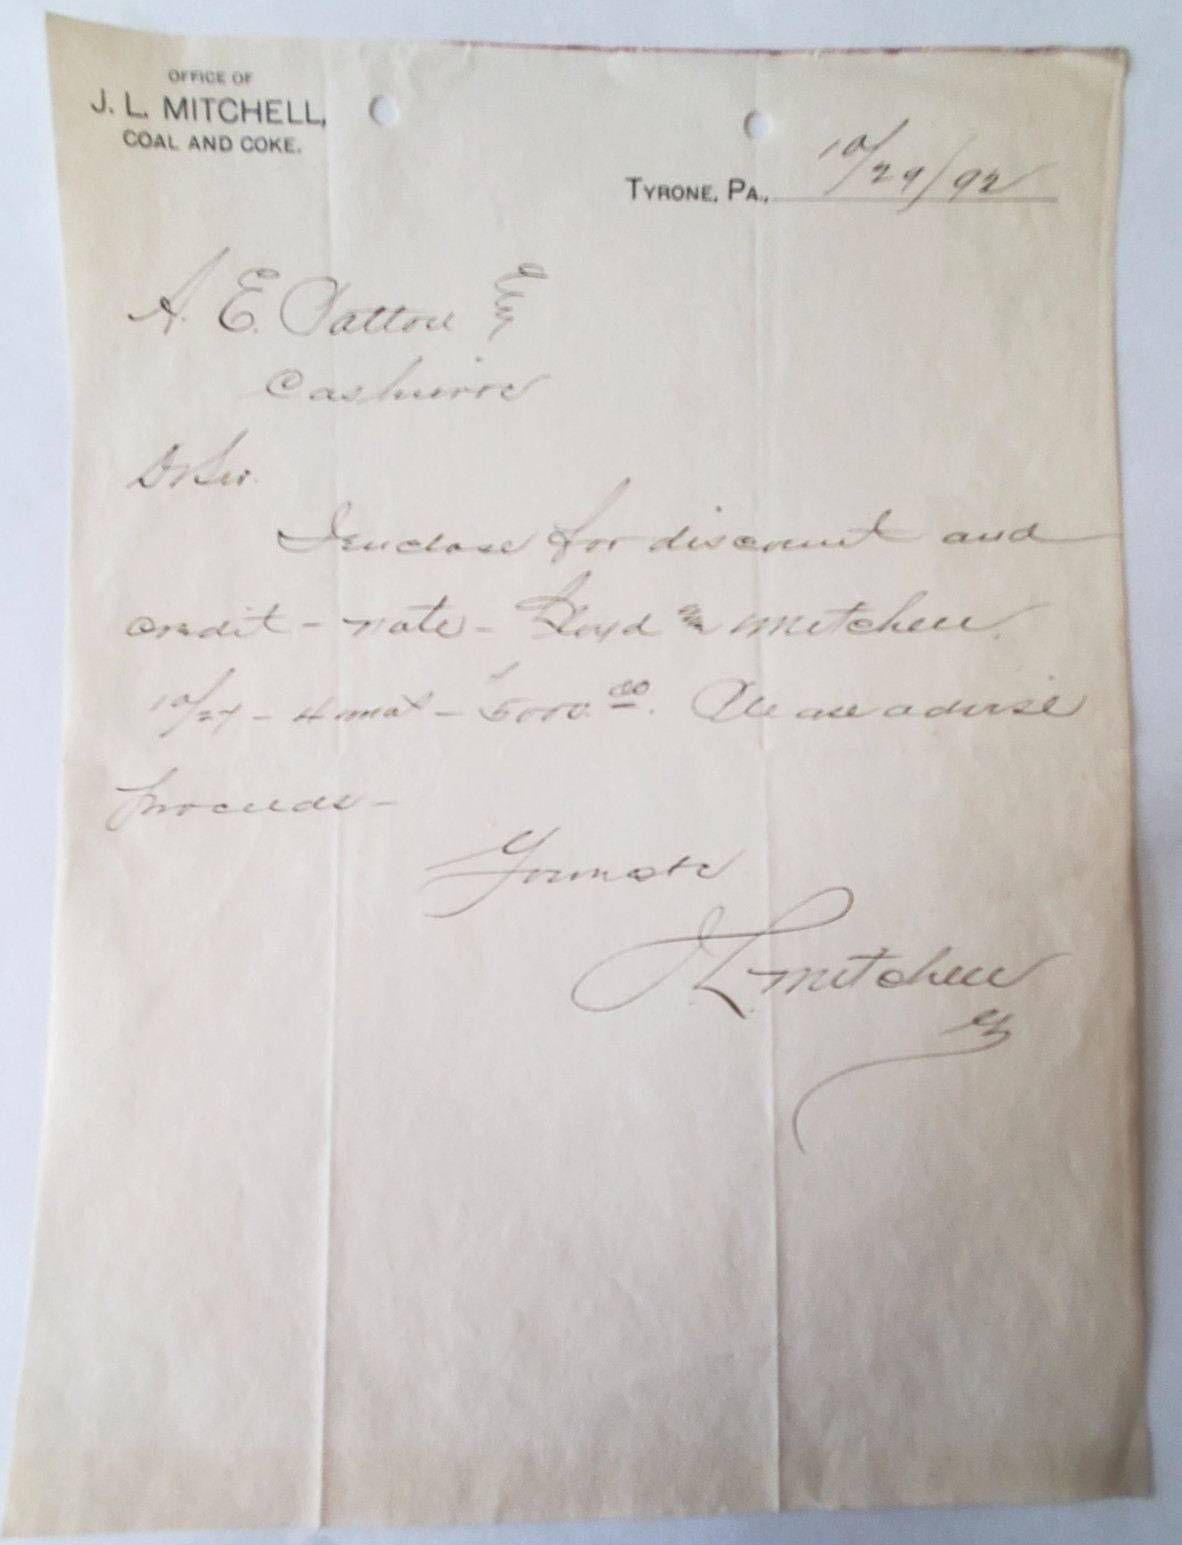 OFFICE OF
J. L. MITCHELL,
COAL AND COKE.
TYRONE, PA., 10/29/92
A. E. Patton Esq
Cashier
Dr Sir.
I enclose for discount and
credit - note - Lloyd Mitchell
10/27 - 4 mos - 5000.00. Please advise
proceeds -
Yours &c
J L Mitchell